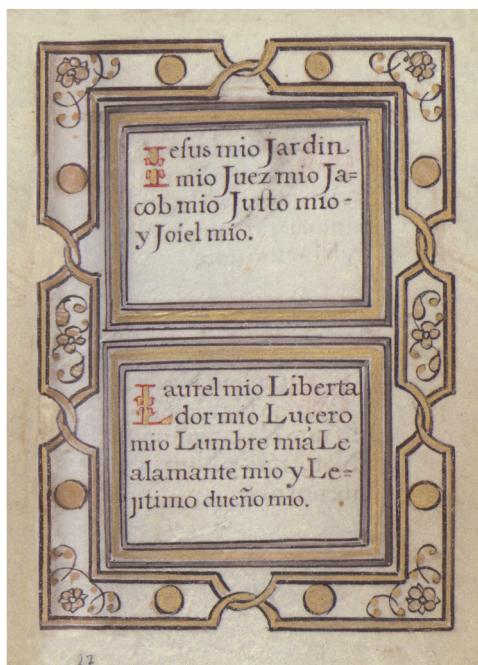 Jesus mio Jardin
mio Juez mio Ja=
cob mio Justo mio -
y Joiel mio.
Laurel mio Liberta
dor mio Luçero
mio Lumbre mia Le
alamante mio y Le=
jitimo dueño mio.
27